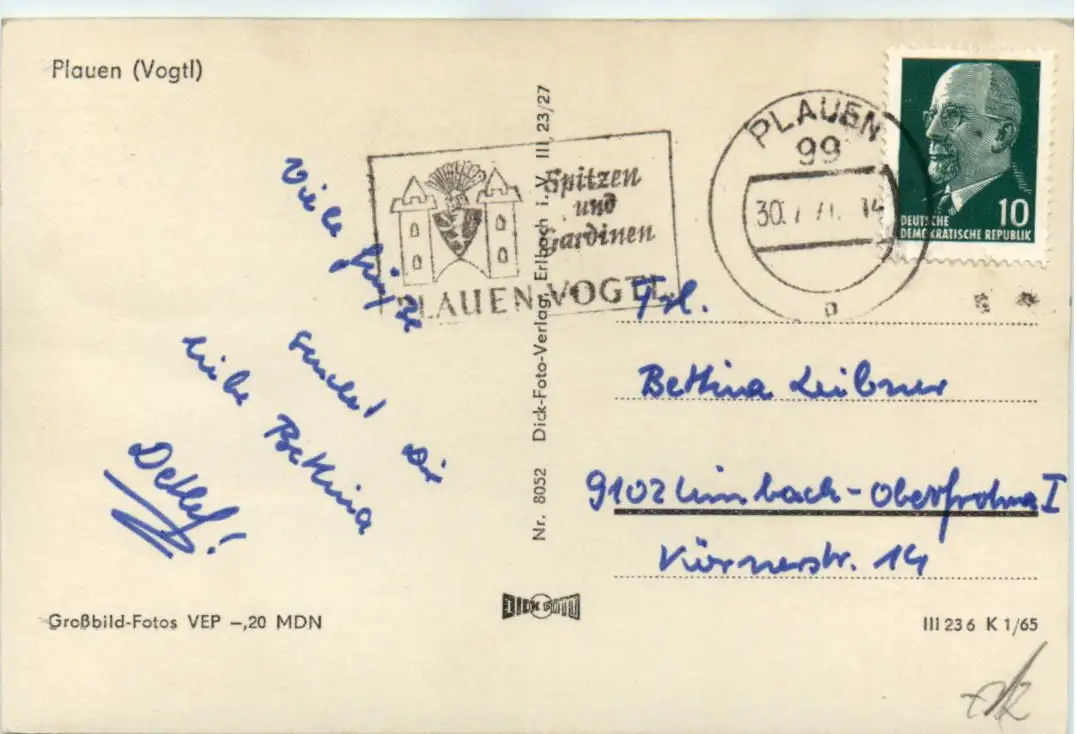 Plauen (Vogtl)
Spitzen
und
Gardinen
PLAUEN VOGTL.
PLAUEN
99
30.7.71. 14
DEUTSCHE
DEMOKRATISCHE REPUBLIK
10
Viele Grüße
sendet Dir
liebe Bettina
Detlef!
Nr. 8052 Dick-Foto-Verlag, Erlbach i. V. III 23/27
Frl.
Bettina Leibner
9102 Limbach-Oberfrohna I
Körnerstr. 14
DICK FOTO
Großbild-Fotos VEP -,20 MDN
III 23 6 K 1/65